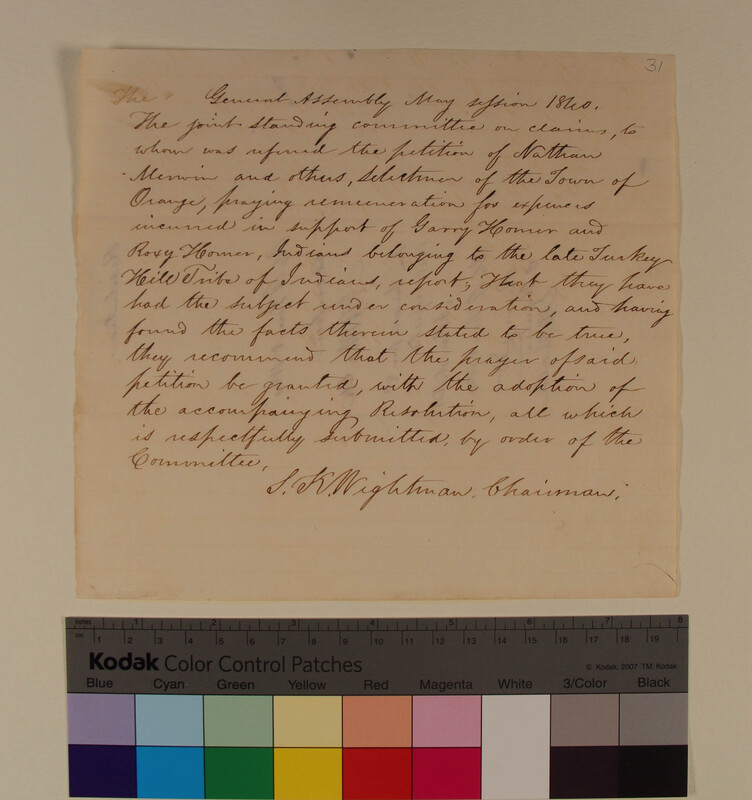 31
The General Assembly May session 1840.
The joint standing committee on claims, to
whom was refered the petition of Nathan
Merwin and others, Selectmen of the Town of
Orange, praying remuneration for expences
incurred in support of Garry Homer and
Roxy Homer, Indians belonging to the late Turkey
Hill Tribe of Indians, report; That they have
had the subject under consideration, and having
found the facts therein stated to be true,
they recommend that the prayer of said
petition be granted, with the adoption of
the accompanying Resolution, all which
is respectfully submitted, by order of the
Committee,
S. K. Wightman. Chairman.
inches 1 2 3 4 5 6 7 8
cm 1 2 3 4 5 6 7 8 9 10 11 12 13 14 15 16 17 18 19
Kodak Color Control Patches © Kodak, 2007 TM: Kodak
Blue Cyan Green Yellow Red Magenta White 3/Color Black